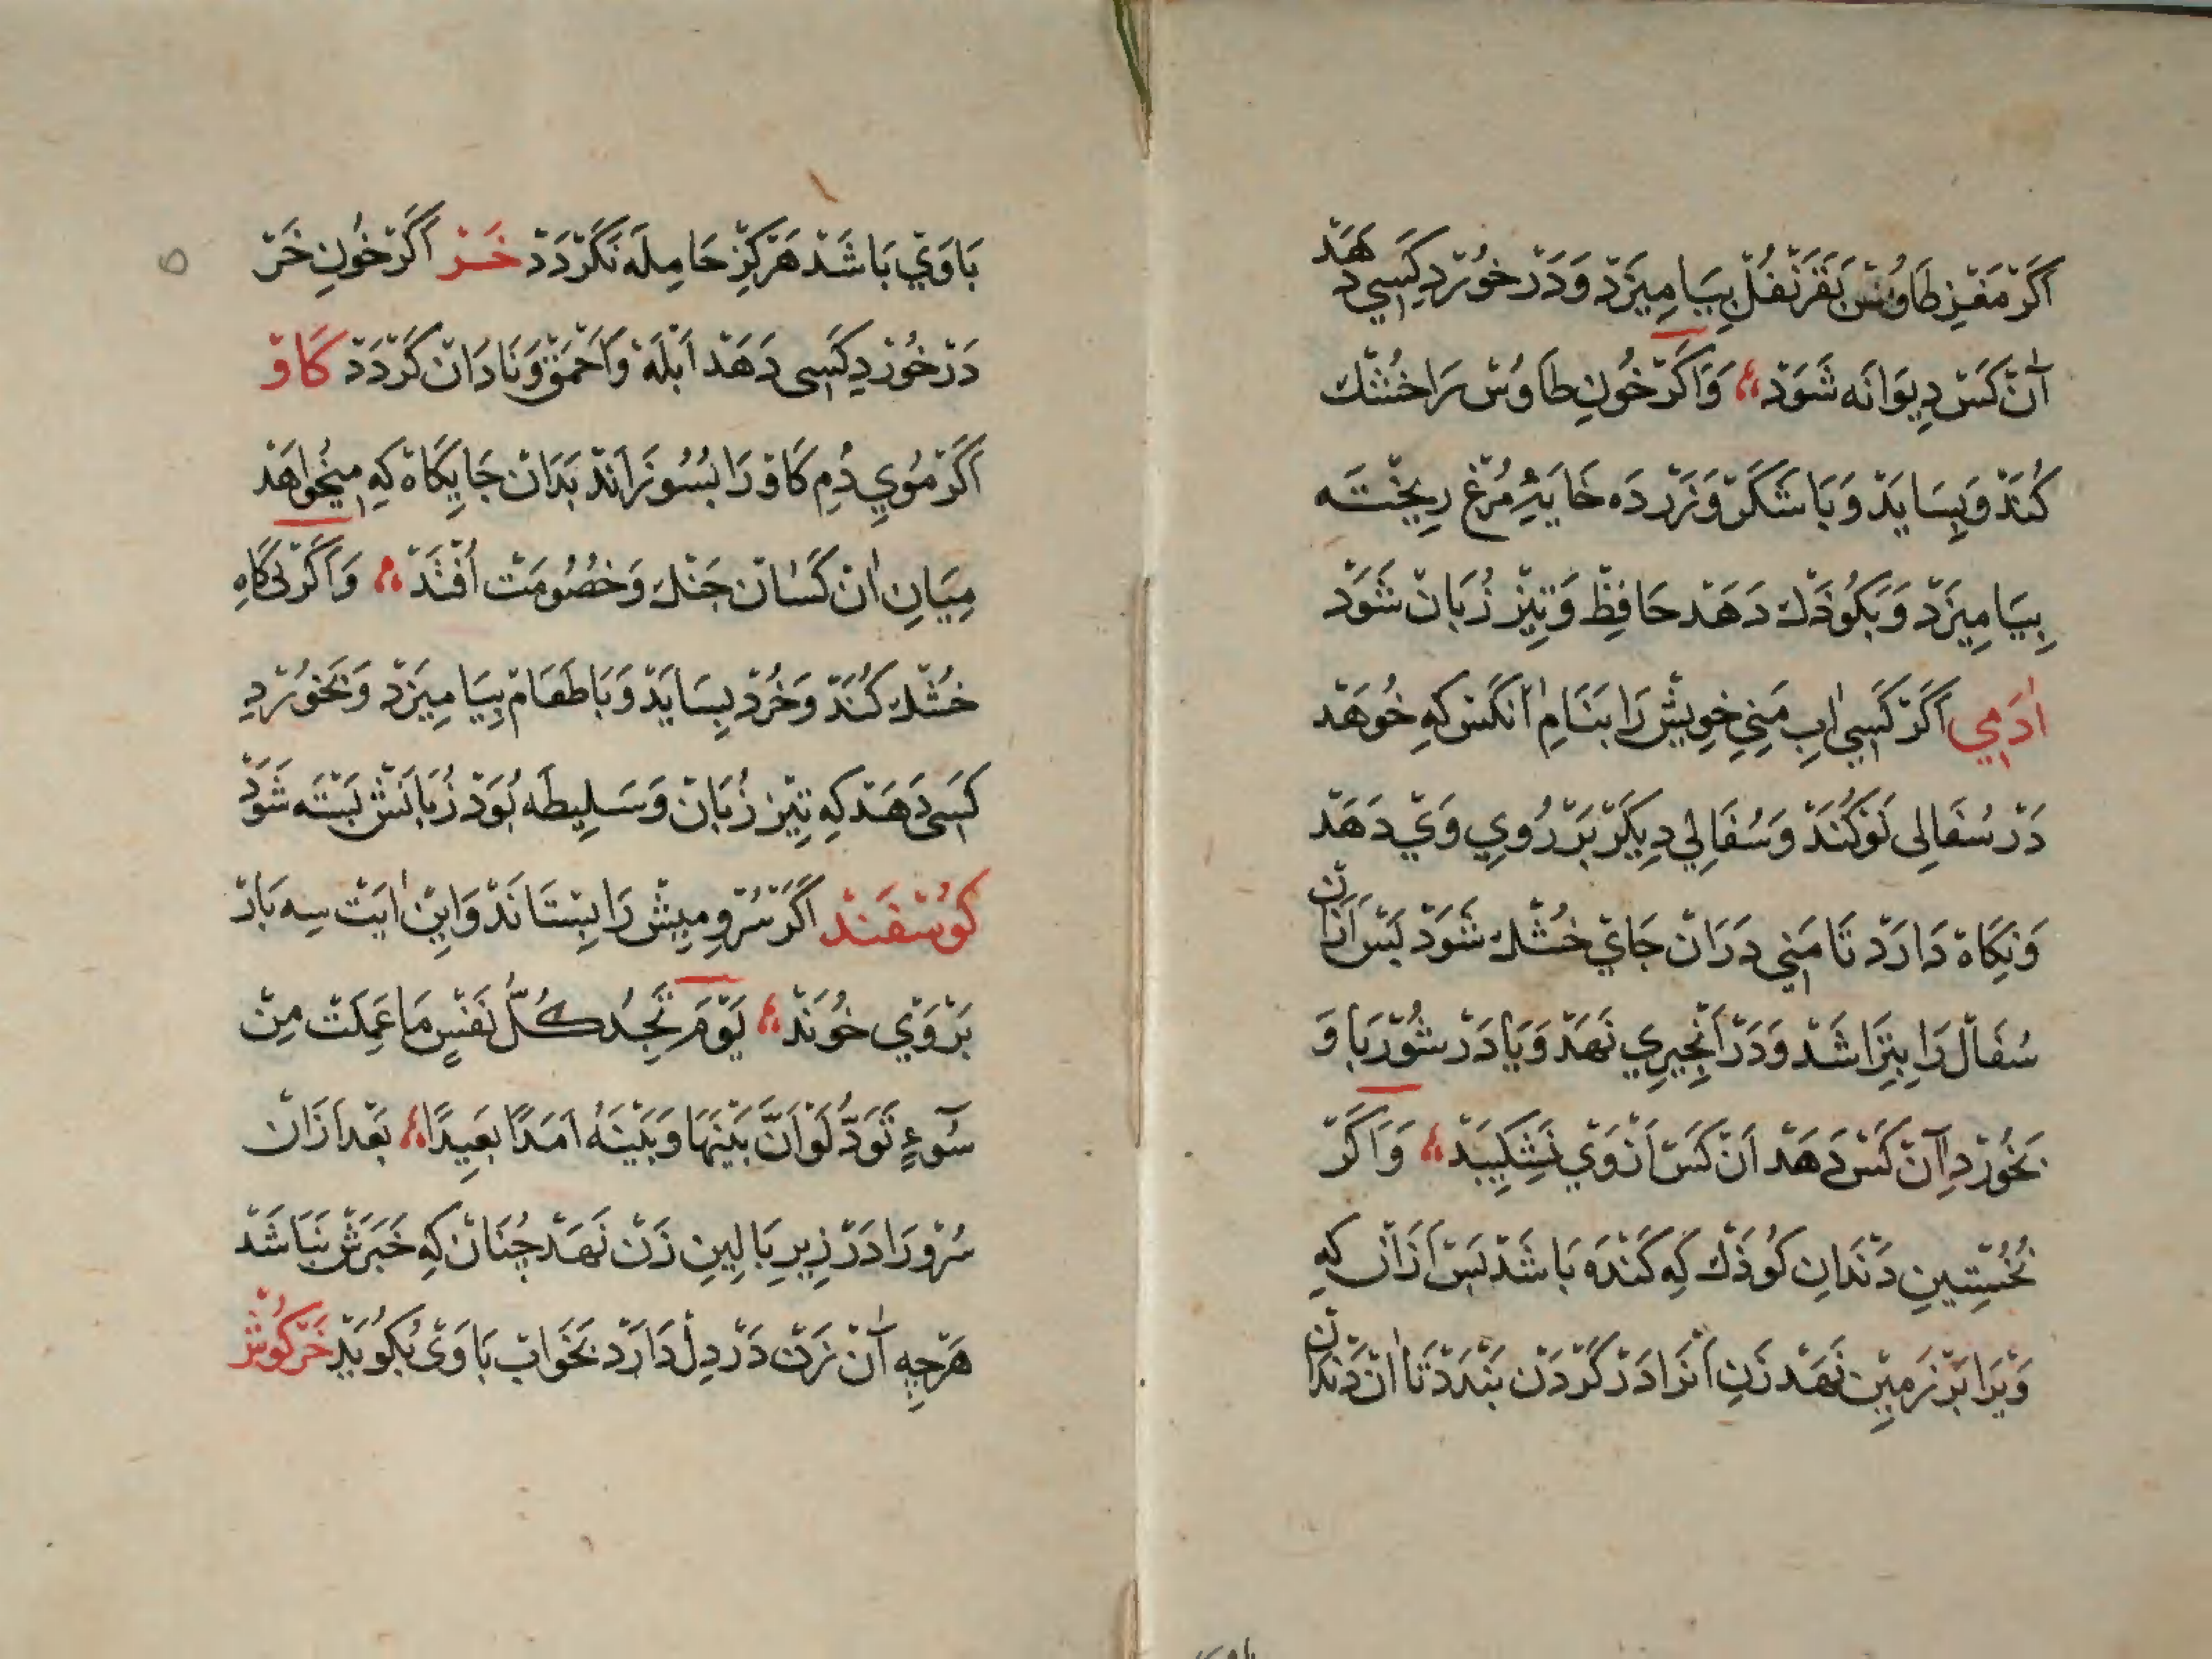 اَكَرْ مَغْزِ طَاوُسْ بَقَرَنْفُلْ بِيَامِيزَدْ وَدَرْ خُورْدِ كَسِي دَهَدْ
آنْ كَسْ دِيوَانَه شَوَدْ وَاَكَرْ خُونِ طَاوُسْ رَا خُشْك
كُنَدْ وَبِسَايَدْ وَبَا شَكَرْ وَزَرْدَه خَايَهٔ مُرْغ رِيخْتَه
بِيَامِيزَدْ وَبَكُوذَكْ دَهَدْ حَافِظْ وَتِيزْ زُبَانْ شَوَدْ
اٰدَمِي اَكَرْ كَسِي اٰبِ مَنِيِ خِويشْ رَا بَنَامِ اٰنْكَسْ كِه خُوهَدْ
دَرْ سُفَالِى نَوْ كُنَدْ وَسُفَالِي دِيكَرْ بَرْ رُويِ وَيْ دَهَدْ
وَنِكَاهْ دَارَدْ تَا مَنِي دَرَانْ جَايْ خُشْكْ شَوَدْ بَسْ اَزَانْ
سُفَالْ رَا بِتَرَاشَدْ وَدَرْ اَنْجِيرِي نَهَدْ وَيَا دَرْ شُورْبَا وَ
بَخُورْدِ آنْ كَسْ دَهَدْ اَنْ كَسْ اَزْ وَيْ نَشِكِيبَدْ وَاَكَرْ
نُخُسْتِينِ دَنْدَانِ كُوذَكْ كِه كَنْدَه بَاشَدْ بَسْ اَزَانْ كِه
وَيْرَا بَرْ زَمِينْ نَهَدْ زَنِ اَنْرَا دَرْ كَرْدَنْ بَنْدَدْ تَا اٰنْ دَنْدَانْ
بَا وَيْ بَاشَدْ هَرْكِزْ حَامِلَه نَكَرْدَدْ خَرْ اَكَرْ خُونِ خَرْ
دَرْ خُورْدِ كَسِى دَهَدْ اَبْلَهْ وَاَحْمَقْ وَنَادَانْ كَرْدَدْ كَاوْ
اَكَرْ مُويِ دُمِ كَاوْ رَا بُسُوزَانَدْ بَدَانْ جَايِكَاهْ كِه مِيخُواهَدْ
مِيَانِ اٰنْ كَسَانْ جَنْك وَخُصُومَتْ اُفْتَدْ وَاَكَرْ نى كَاهِ
خُشْكْ كُنَدْ وَخُرْدْ بِسَايَدْ وَبَا طَعَامْ بِيَامِيزَدْ وَبَخُورْدِ
كَسِى دَهَدْ كِه تِيزْ زُبَانْ وَسَلِيطَه بُوَدْ زُبَانَشْ بَسْتَه شَوَدْ
كُوسْفَنْدْ اَكَرْ سُرُو مِيشْ رَا بِسْتَانَدْ وَاِينْ اٰيَتْ سِه بَارْ
بَرْ وَيْ خُونَدْ يَوْمَ تَجِدُ كُلُّ نَفْسٍ مَا عَمِلَتْ مِنْ
سُوٓءٍ تَوَدُّ لَوْ اَنَّ بَيْنَهَا وَبَيْنَهُ اَمَدًا بَعِيدًا بَعْدَ اَزَانْ
سُرُو رَا دَرْ زِيرِ بَالِينِ زَنْ نَهَدْ چُنَانْ كِه خَبَرَشْ نَبَاشَدْ
هَرْچِه آنْ زَنْ دَرْ دِلْ دَارَدْ بَخَوابْ بَا وَىْ بُكُويَدْ خَرْكُوشْ